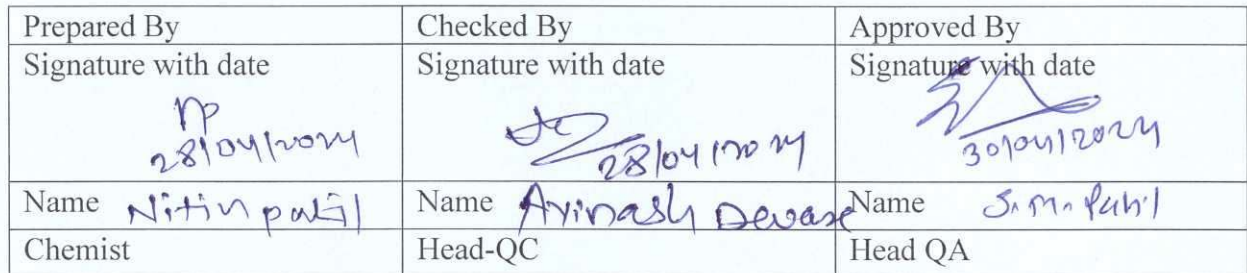 Prepared By Checked By Approved By
Signature with date Signature with date Signature with date
28/04/2024 28/04/2024 30/04/2024
Name Nitin patil Name Avinash Devare Name S.M. Patil
Chemist Head-QC Head QA